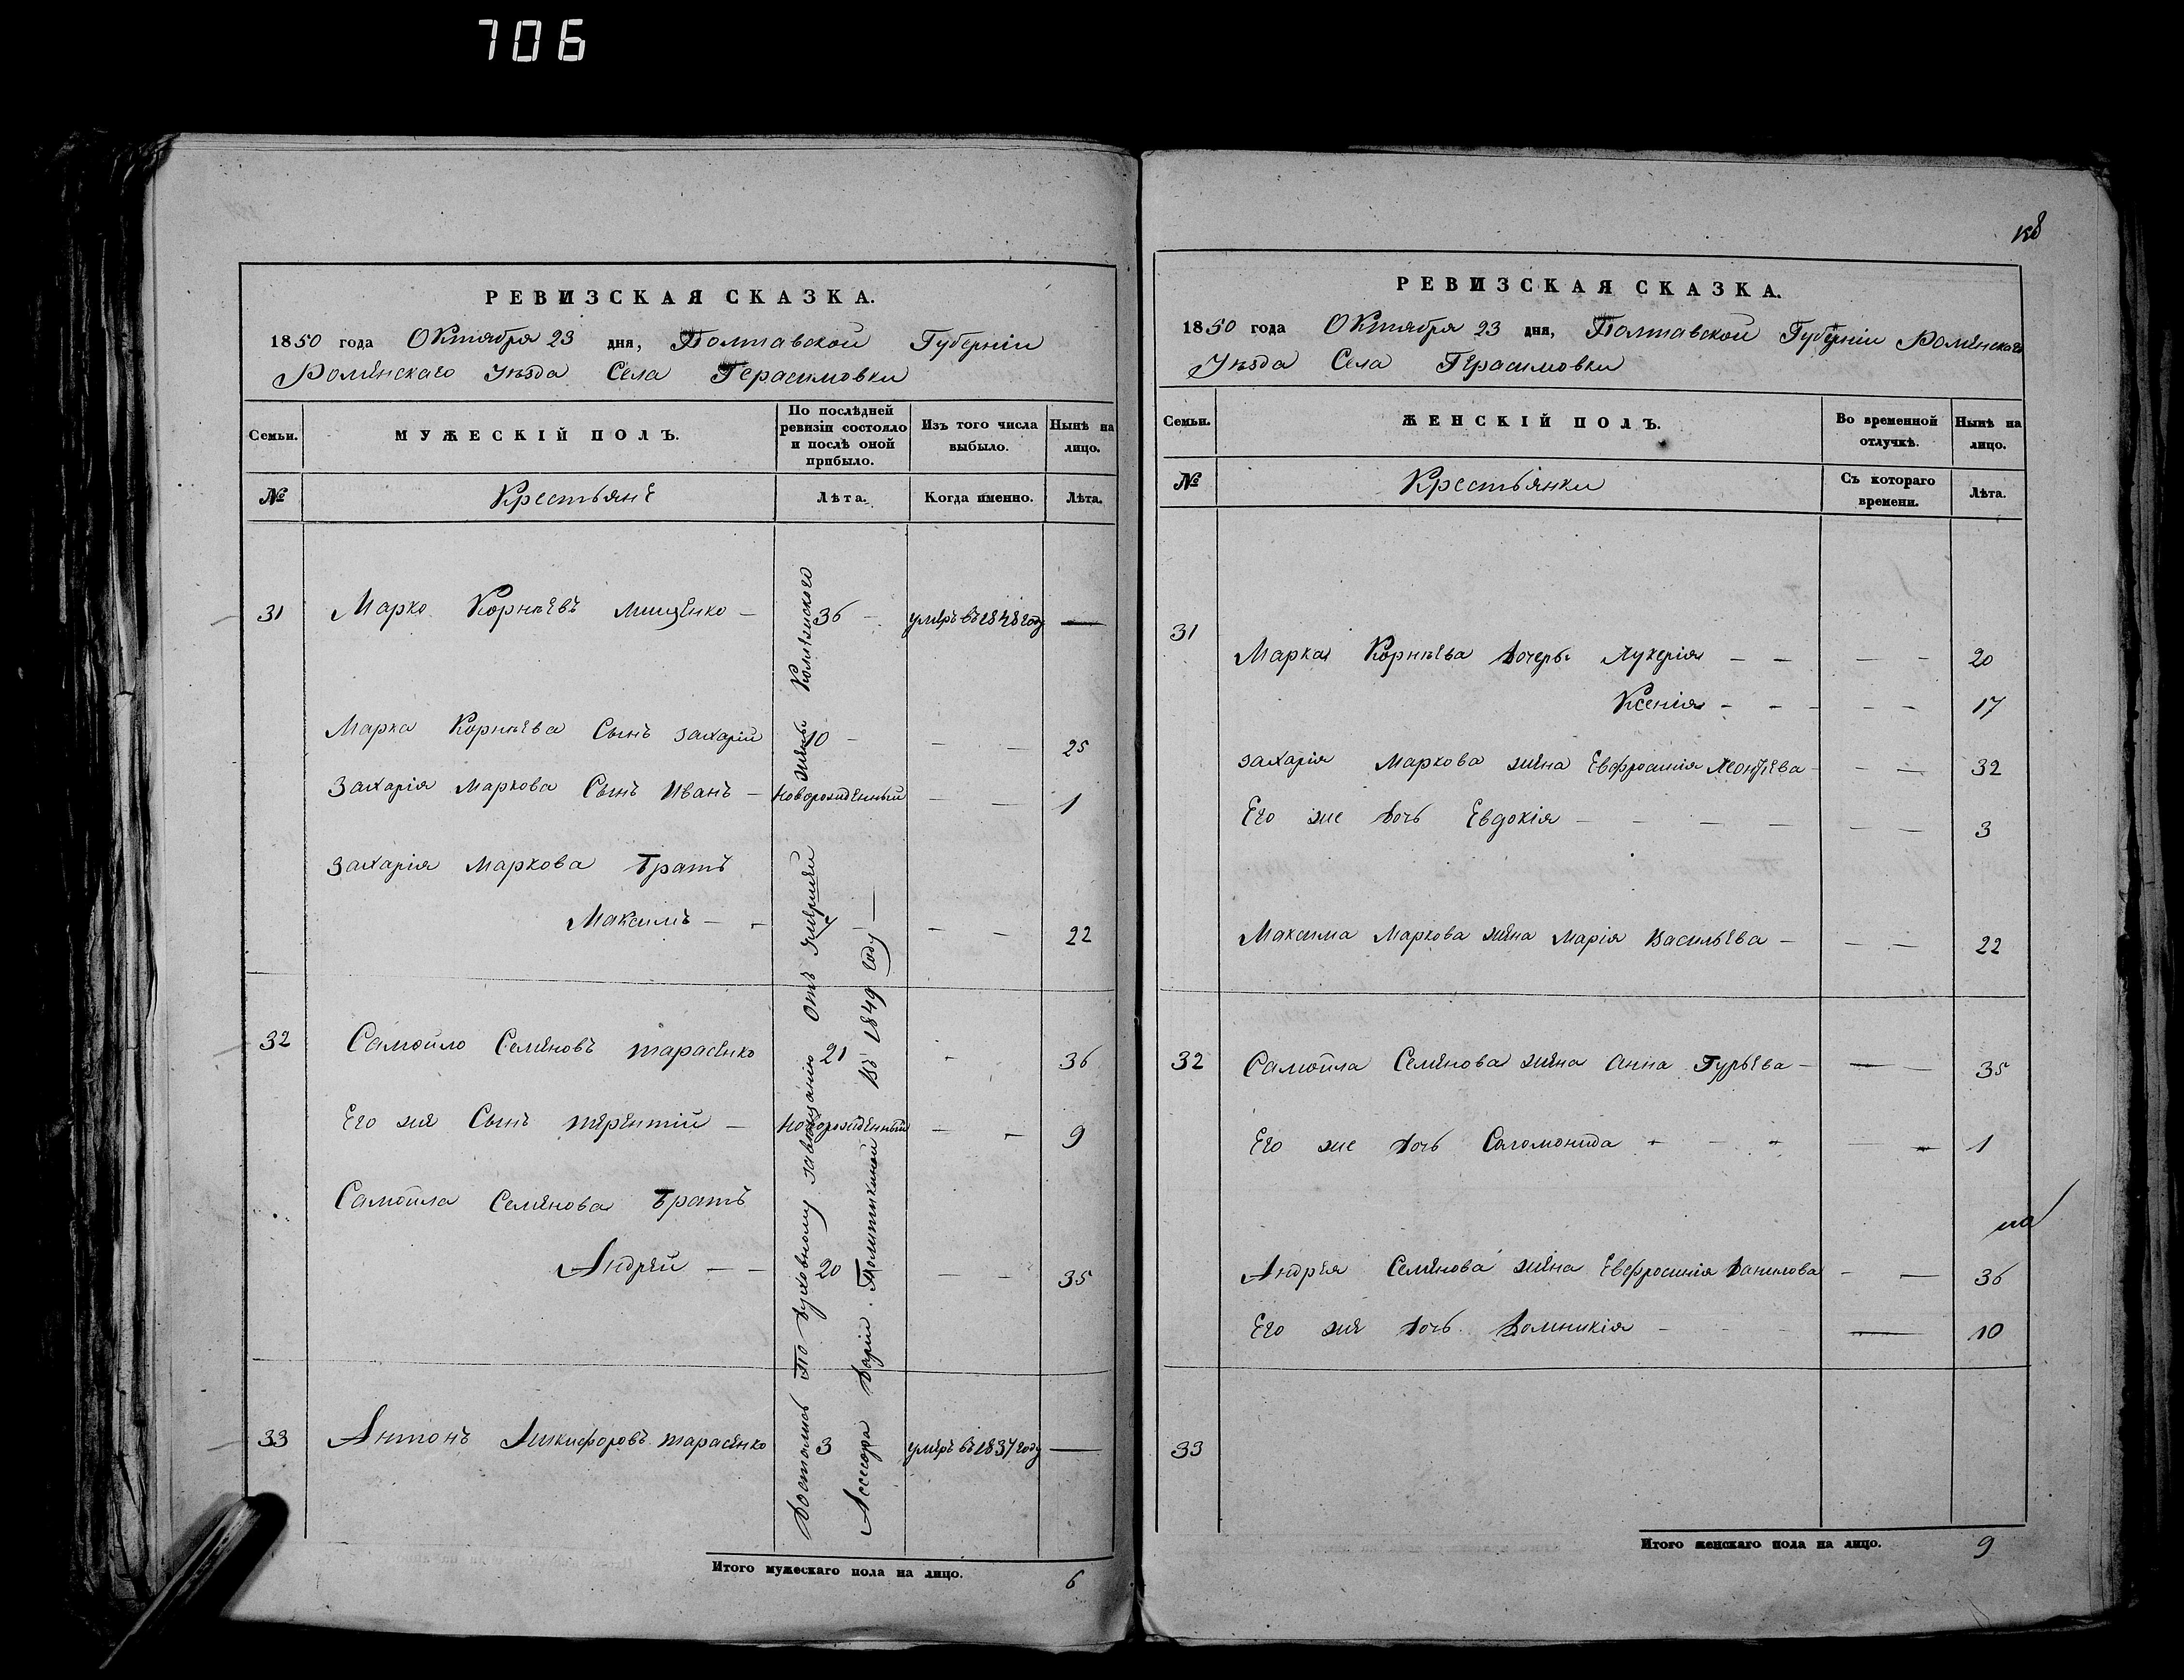 706
РЕВИЗСКАЯ СКАЗКА.
1850 года Октября 23 дня, Полтавской Губерніи
Роменскаго Уѣзда Села Герасимовки
Семьи.
МУЖЕСКІЙ ПОЛЪ.
По послѣдней ревизіи состояло и послѣ оной прибыло.
Изъ того числа выбыло.
Нынѣ на лицо.
№
Крестьяне
Лѣта.
Когда именно.
Лѣта.
31 Марко Корнѣевъ Мищенко — 36 — умеръ въ 1848 году —
Марка Корнѣева Сынъ Захарій 10 — — — 25
Захарія Маркова Сынъ Иванъ — Новорожденный — — 1
Захарія Маркова Братъ
Максимъ — — — — 22
32 Самойло Семеновъ Тарасенко 21 - 36
Его же Сынъ Терентій — Новорожденный — — 9
Самойла Семенова Братъ
Андрей — — 20 — — 35
33 Антонъ Никифоровъ Тарасенко 3 умеръ въ 1837 году —
Достались По Духовному завещанію Отъ умершей жены Колежского
Ассесора Дарьи Политикиной Въ 1849 году —
Итого мужескаго пола на лицо. 6
РЕВИЗСКАЯ СКАЗКА.
1850 года Октября 23 дня, Полтавской Губерніи Роменскаго
Уѣзда Села Герасимовки
Семьи.
ЖЕНСКІЙ ПОЛЪ.
Во временной отлучкѣ.
Нынѣ на лицо.
№
Крестьянки
Съ котораго времени.
Лѣта.
31
Марка Корнѣева Дочери Лукерія — — — — 20
Ксенія — — — — — 17
Захарія Маркова жена Евфросинія Леонтіева — — — 32
Его же Дочь Евдокія — — — — — — 3
Максима Маркова жена Марія Васильева — — — 22
32 Самойла Семенова жена Анна Гурьева — — — 35
Его же Дочь Соломонида - - - — — 1
Андрея Семенова жена Евфросинія Данилова — — 36
Его же Дочь Домникія — — 10
33
Итого женскаго пола на лицо. 9